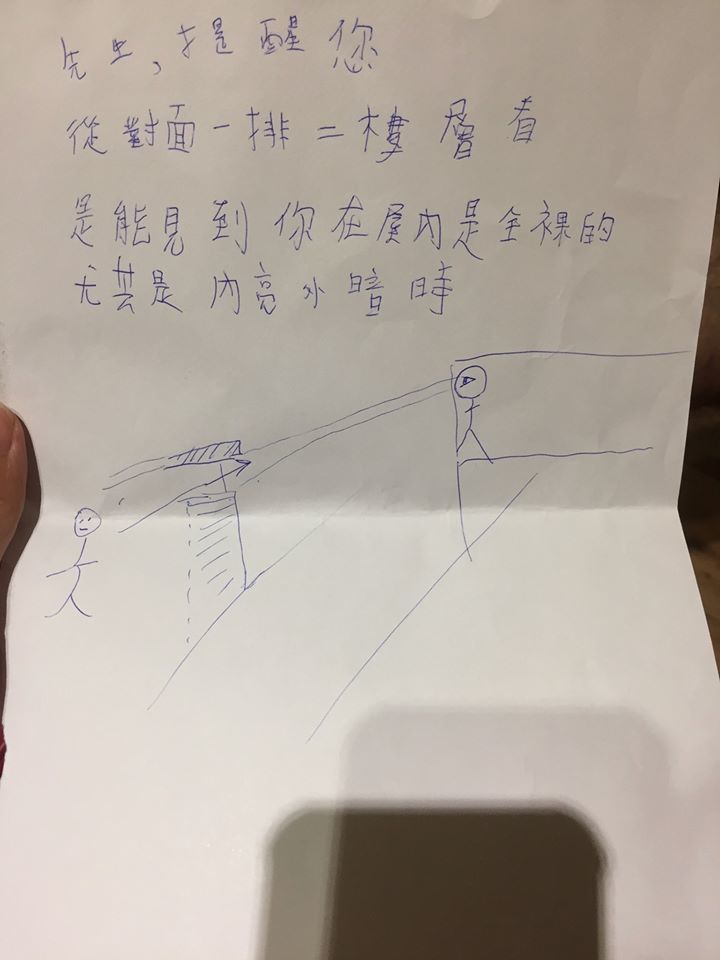 先生，提醒您
從對面一排二樓層看
是能見到你在屋內是全裸的
尤其是內亮外暗時